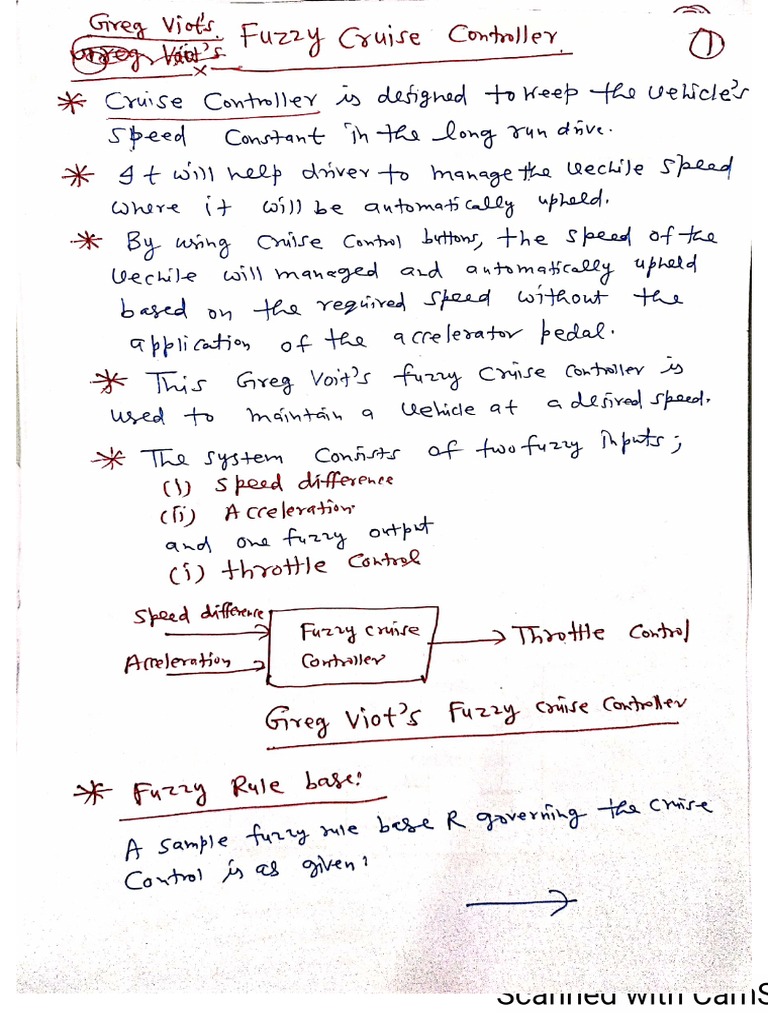 Greg Viot's. Fuzzy Cruise Controller.
Greg Voit's
1
* Cruise Controller is designed to keep the vehicle's
speed constant in the long run drive.
* It will help driver to manage the vechile speed
where it will be automatically upheld.
* By using cruise control buttons, the speed of the
vechile will managed and automatically upheld
based on the required speed without the
application of the accelerator pedal.
* This Greg Voit's fuzzy cruise controller is
used to maintain a vehicle at a desired speed.
* The system consists of two fuzzy inputs;
(i) speed difference
(ii) Acceleration
and one fuzzy output
(i) throttle control
Speed difference
Acceleration
Fuzzy cruise
Controller
Throttle Control
Greg Viot's Fuzzy cruise controller
* Fuzzy Rule base:
A sample fuzzy rule base R governing the cruise
Control is as given:
Scanned with CamS